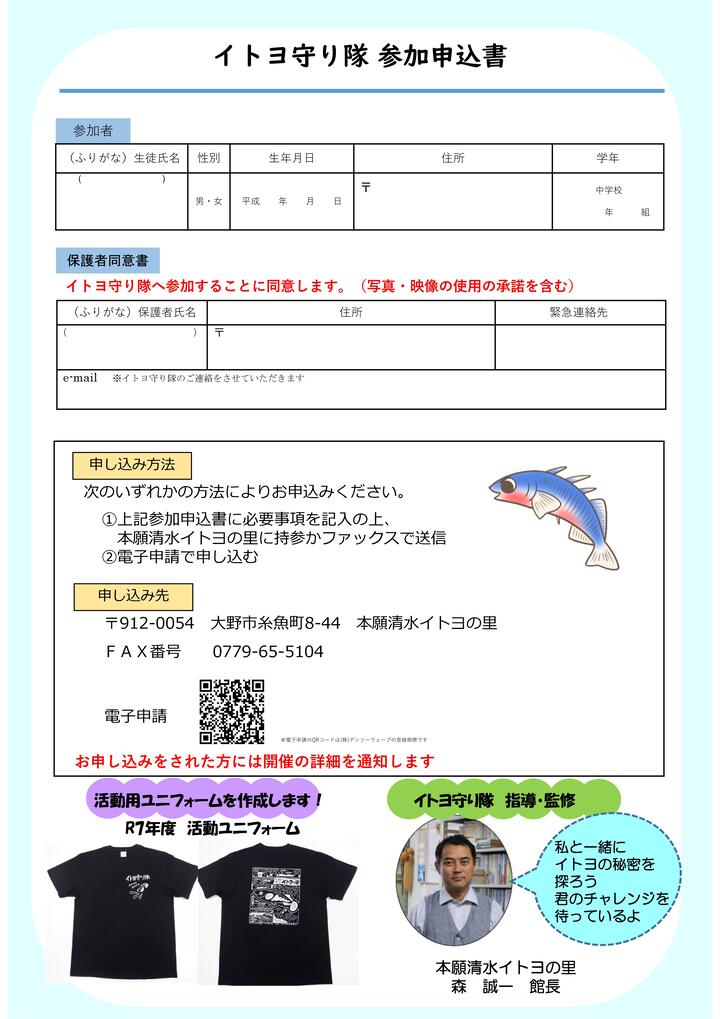 イトヨ守り隊 参加申込書
参加者
（ふりがな）生徒氏名 性別 生年月日 住所 学年
（ ）
男・女 平成 年 月 日 〒 中学校
年 組
保護者同意書
イトヨ守り隊へ参加することに同意します。（写真・映像の使用の承諾を含む）
（ふりがな）保護者氏名 住所 緊急連絡先
（ ） 〒
e-mail ※イトヨ守り隊のご連絡をさせていただきます
申し込み方法
次のいずれかの方法によりお申込みください。
①上記参加申込書に必要事項を記入の上、
本願清水イトヨの里に持参かファックスで送信
②電子申請で申し込む
申し込み先
〒912-0054 大野市糸魚町8-44 本願清水イトヨの里
ＦＡＸ番号 0779-65-5104
電子申請
※電子申請のQRコードは(株)デンソーウェーブの登録商標です
お申し込みをされた方には開催の詳細を通知します
活動用ユニフォームを作成します！
R7年度 活動ユニフォーム
イトヨ守り隊
イトヨ守り隊 指導・監修
私と一緒に
イトヨの秘密を
探ろう
君のチャレンジを
待っているよ
本願清水イトヨの里
森 誠一 館長